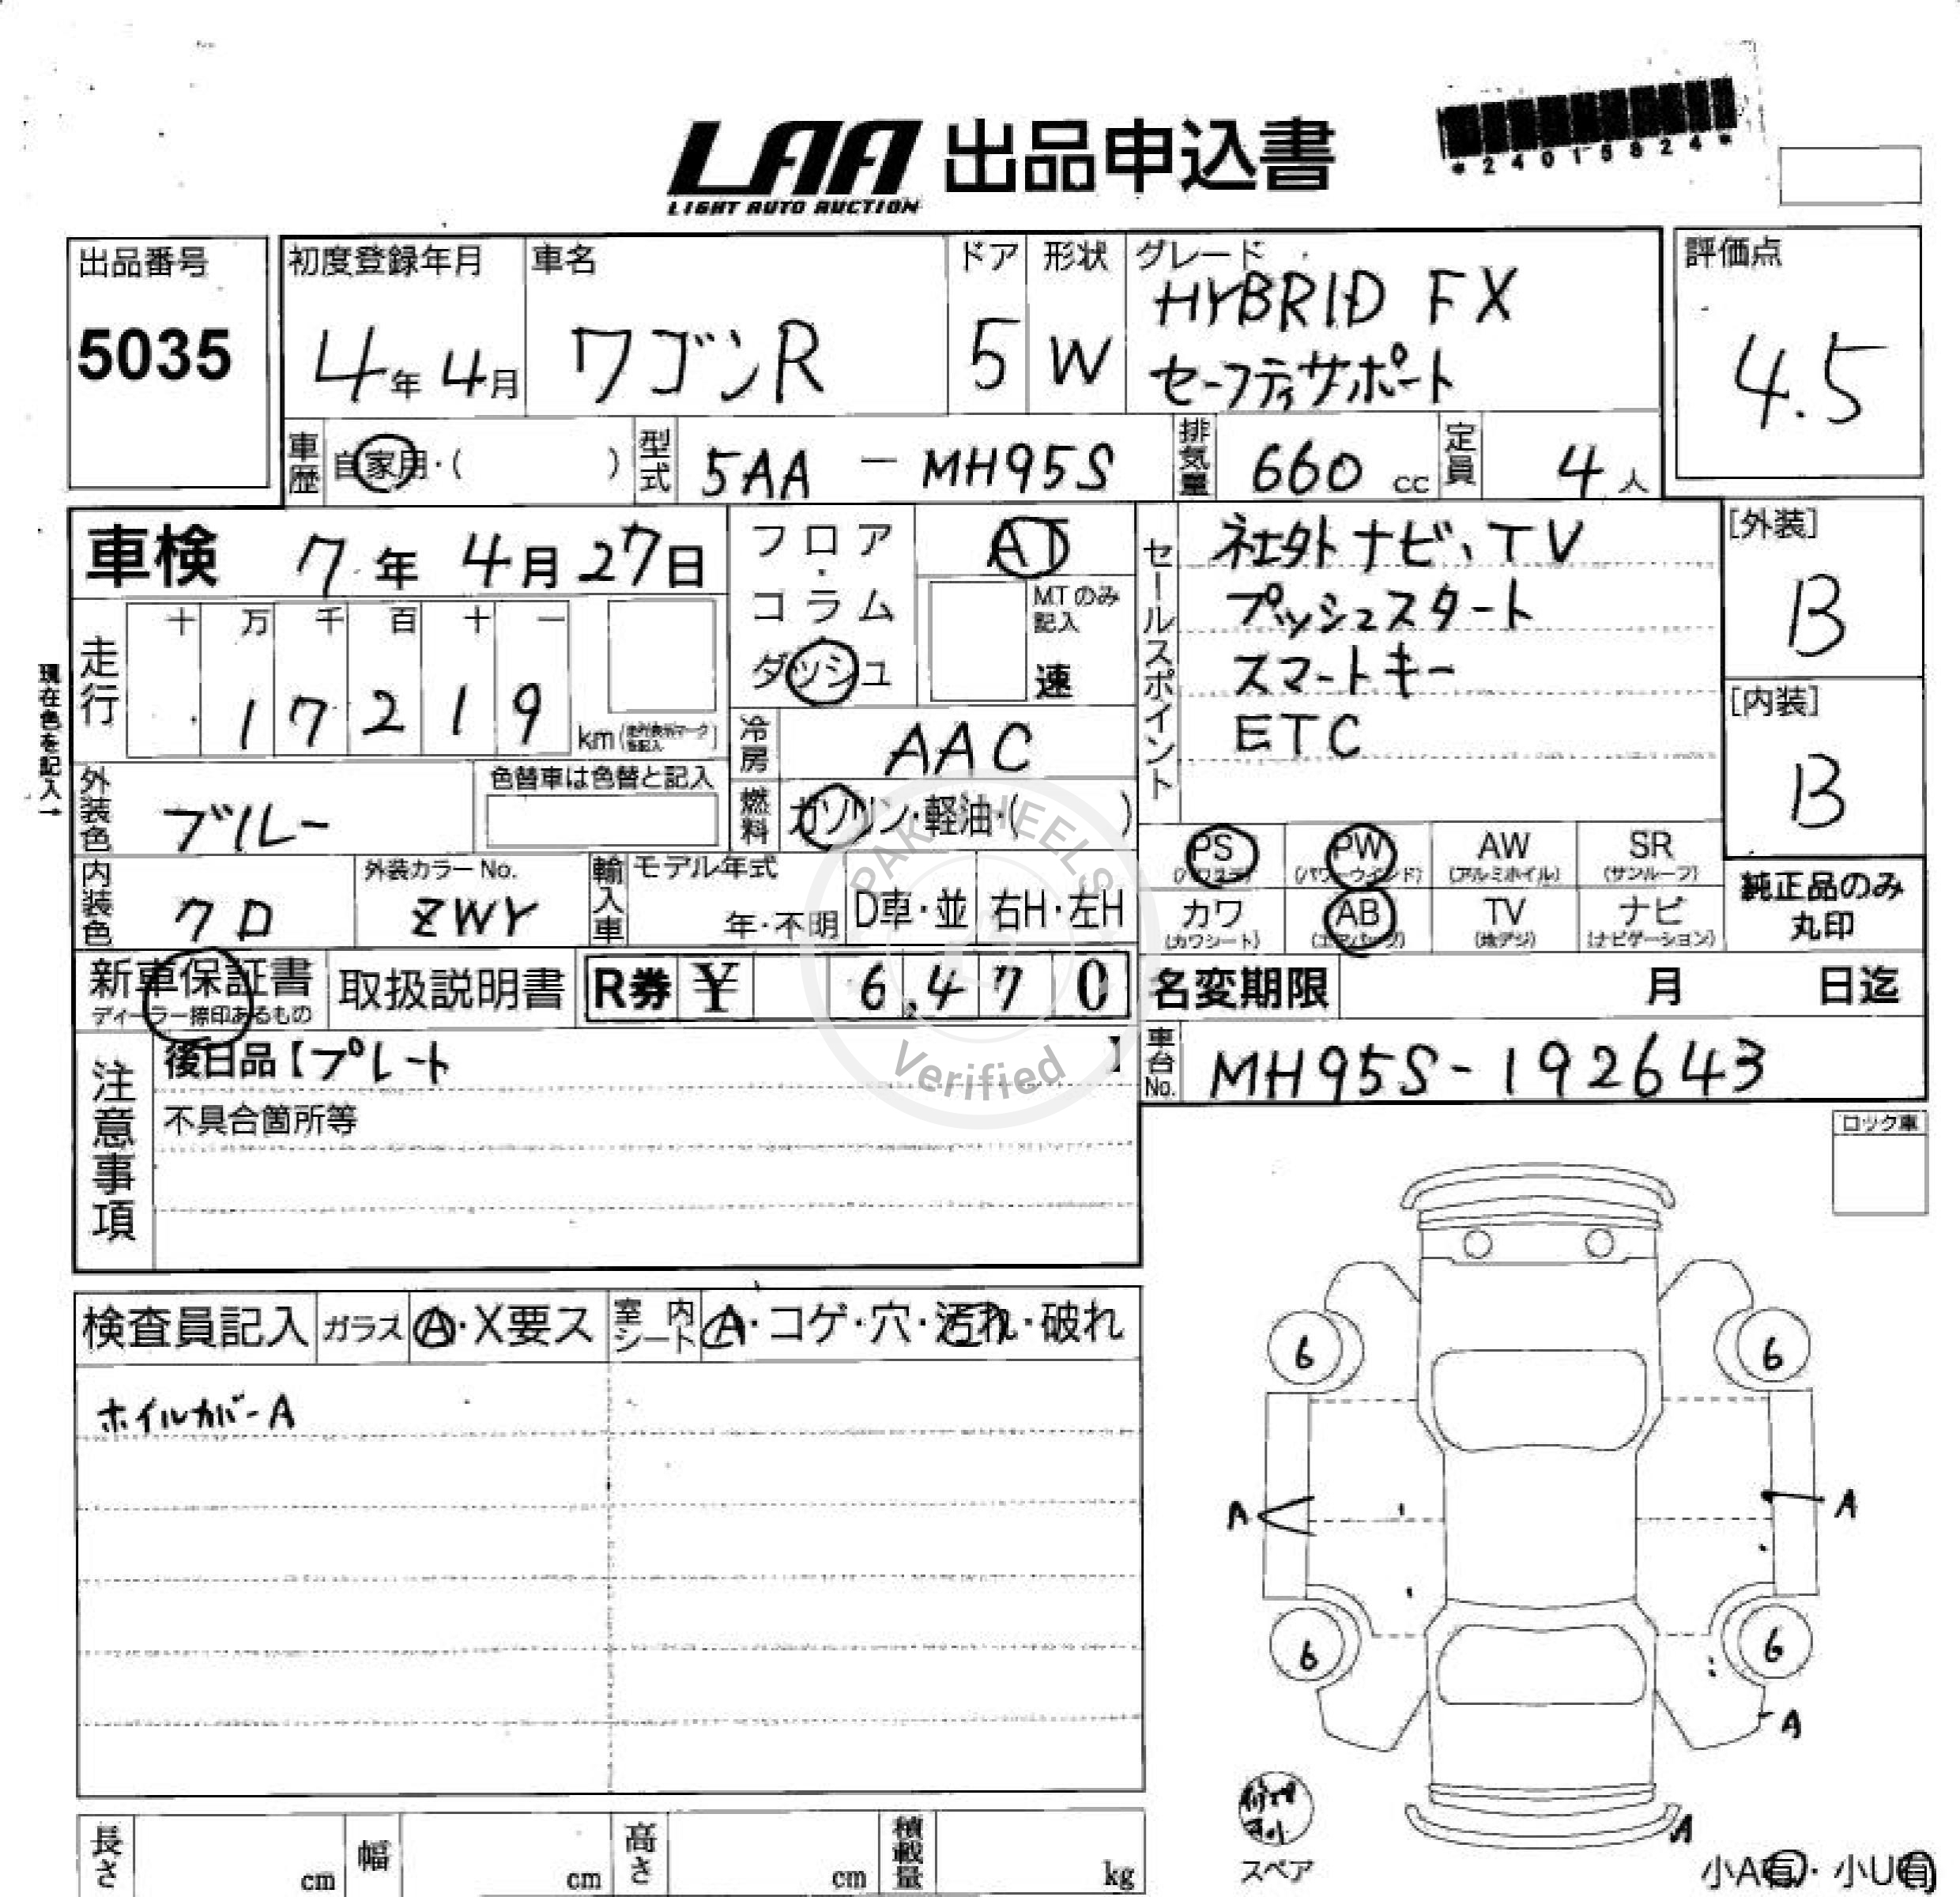 LAA 出品申込書
LIGHT AUTO AUCTION
*24015824*
出品番号
5035
初度登録年月
4年 4月
車名
ワゴンR
ドア
5
形状
W
グレード
HYBRID FX
セーフティサポート
評価点
4.5
車歴
自家用・( )
型式
5AA - MH95S
排気量
660 cc
定員
4人
車検 7年 4月27日
現在色を記入→
走行
十 万 千 百 十 一
1 7 2 1 9 km
フロア・コラム
ダッシュ
AT
MTのみ記入
速
冷房
AAC
燃料
ガソリン・軽油・( )
セールスポイント
社外ナビ、TV
プッシュスタート
スマートキー
ETC
[外装]
B
[内装]
B
外装色
ブルー
色替車は色替と記入
内装色
クロ
外装カラーNo.
ZWY
輸入車
モデル年式
年・不明
D車・並
右H・左H
PS
(パワステ)
PW
(パワーウインド)
AW
(アルミホイル)
SR
(サンルーフ)
カワ
(カワシート)
AB
(エアバッグ)
TV
(地デジ)
ナビ
(ナビゲーション)
純正品のみ
丸印
新車保証書
ディーラー捺印あるもの
取扱説明書
R券 ¥ 6,470
名変期限 月 日迄
車台No.
MH95S-192643
注意事項
後日品【プレート 】
不具合箇所等
ロック車
検査員記入
ガラス
A・X要ス
室内シート
A・コゲ・穴・汚れ・破れ
ホイルカバーA
6
6
A
A
6
6
A
A
スペア
小A有・小U有
長さ
cm
幅
cm
高さ
cm
積載量
kg
PAKWHEELS
Verified